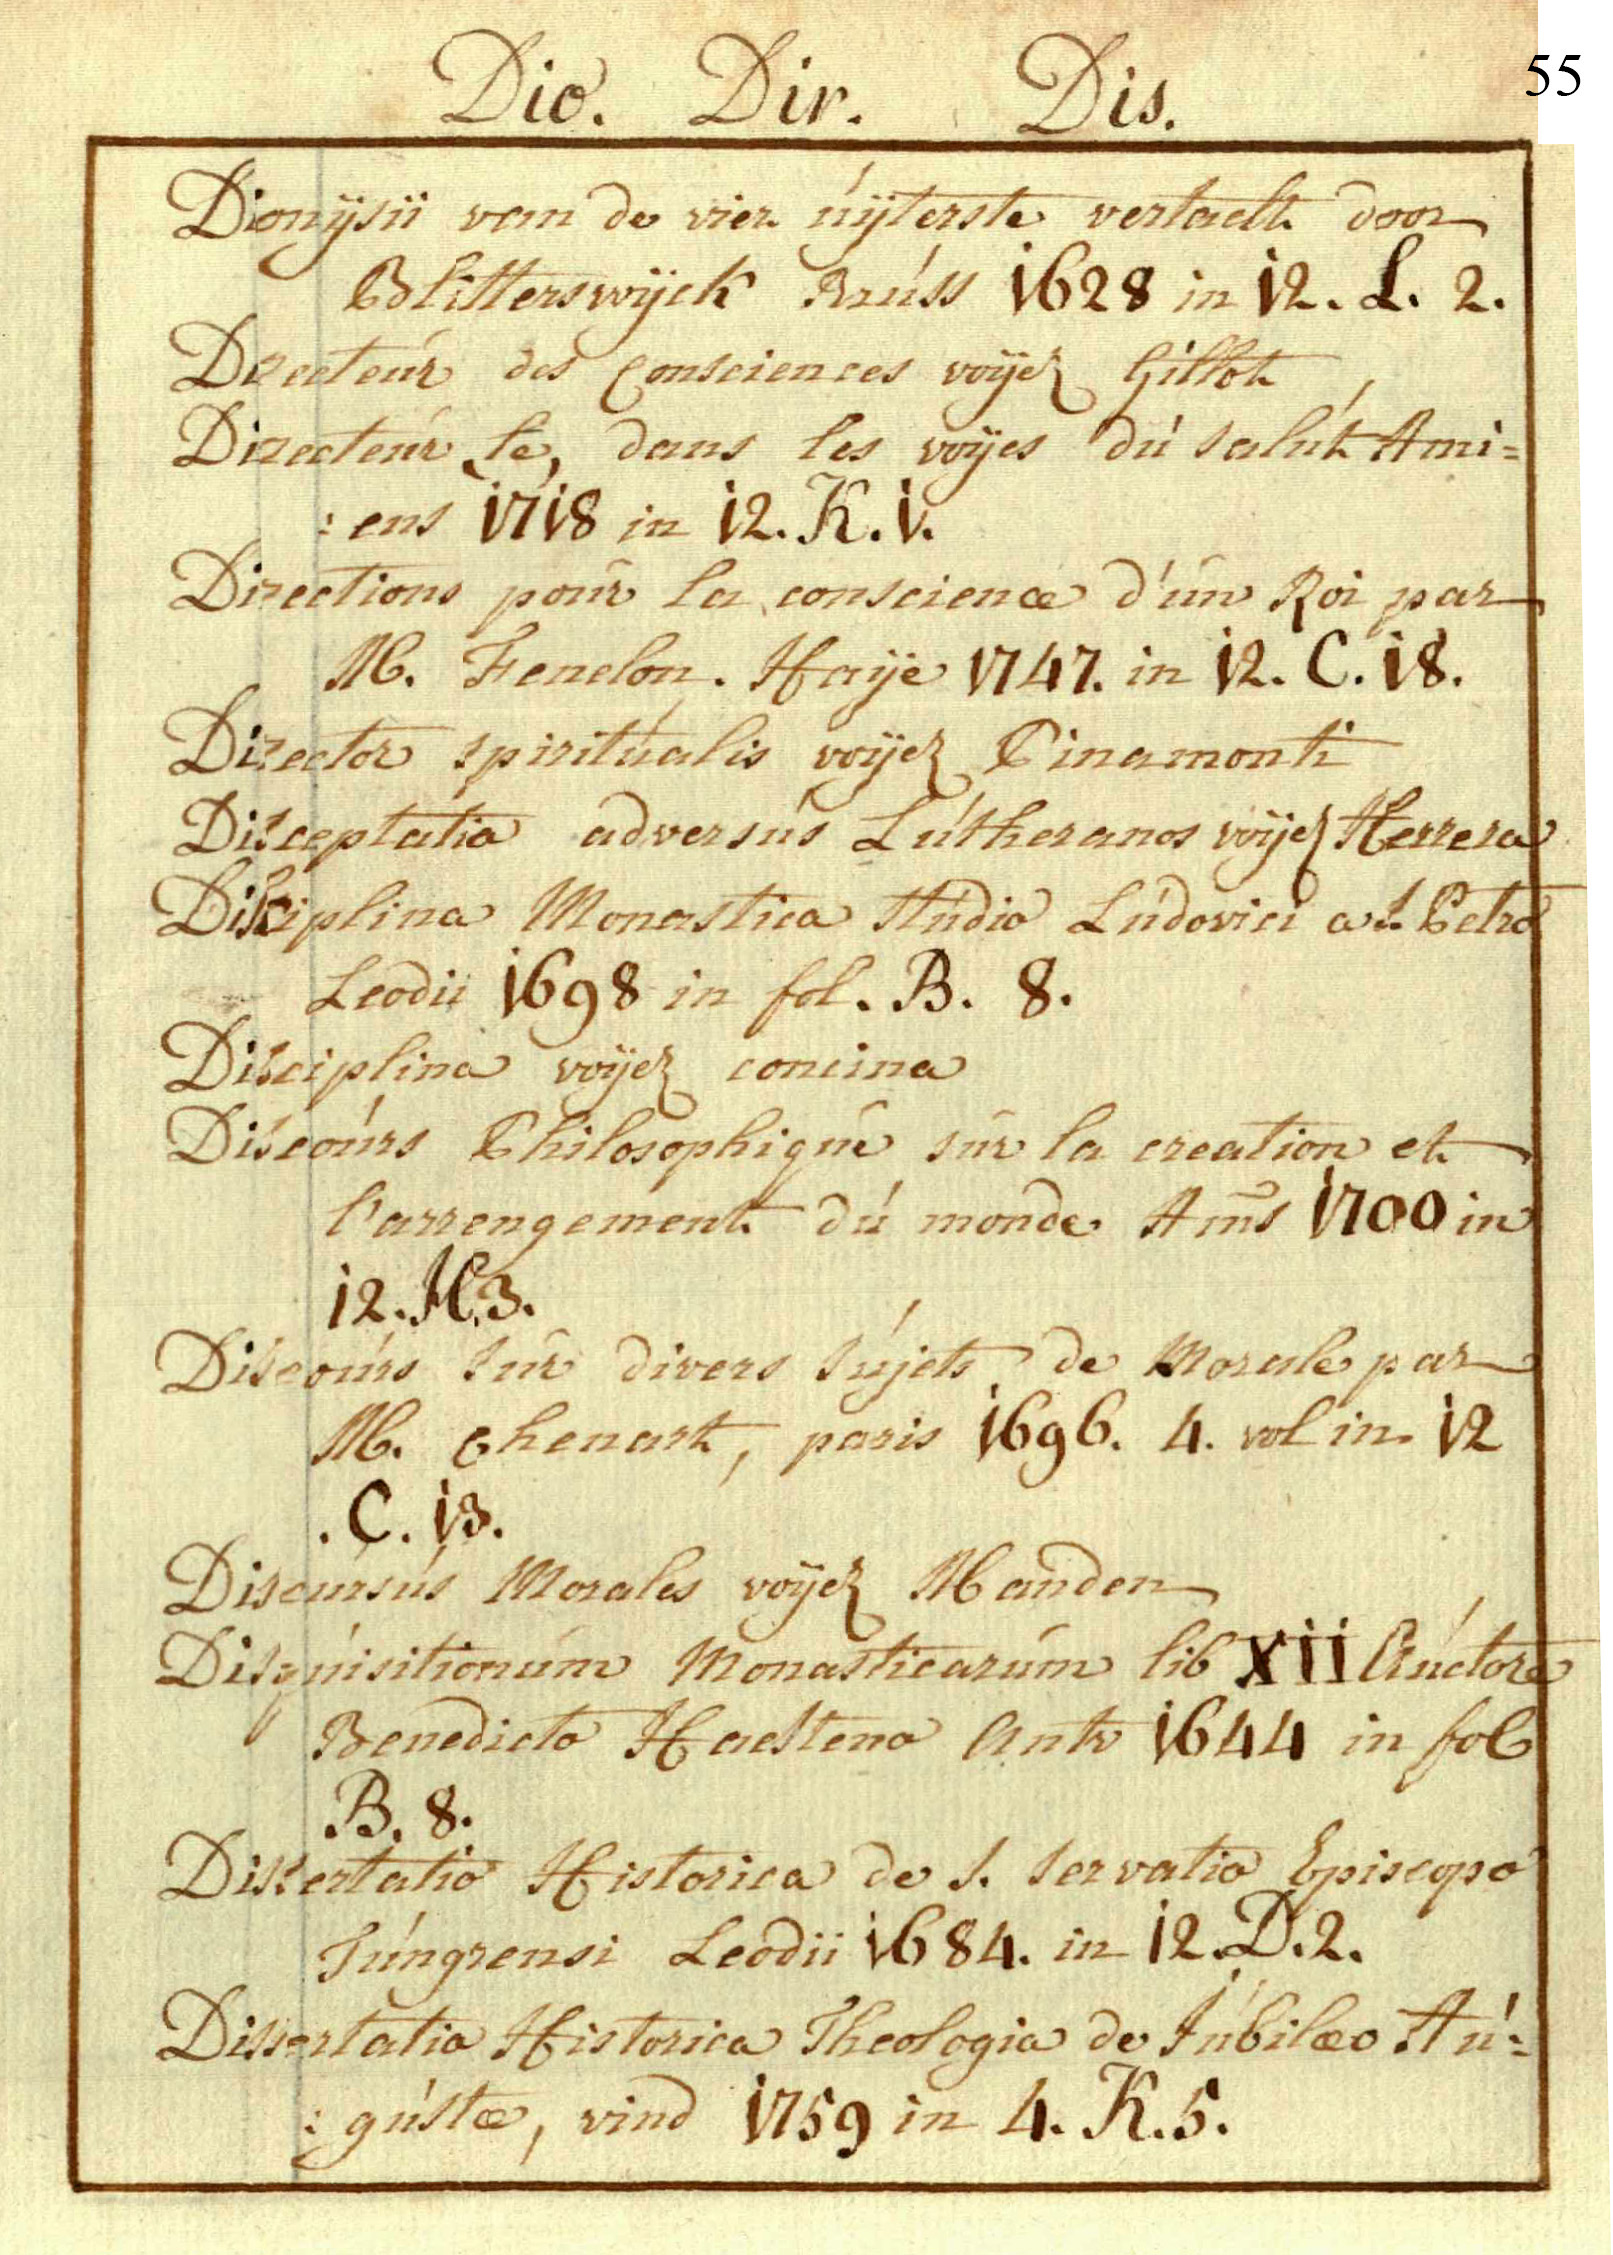 55
Dio. Dir. Dis.
Dionÿsii van de vier úÿterste vertaelt door
Blitterswÿck Brúss 1628 in 12. L. 2.
Directeúr des Consciences voÿez Gillot
Directeúr le, dans les voÿes dú salút Ami=
:ens 1718 in 12. K. 1.
Directions poúr la conscience d'ún Roi par
M. Fenelon. Haÿe 1747. in 12. C. 18.
Director spiritúalis voÿez Pinamonti
Disceptatio adversús Lútheranos voÿez Herrera
Disciplina Monastica stúdio Lúdovici a S. Petro
Leodii 1698 in fol. B. 8.
Disciplina voÿez concina
Discoúrs Philosophiqúe súr la creation et
l'arrengement dú monde Ams 1700 in
12. H. 3.
Discoúrs súr divers sújets de Morale par
M. Chenart, paris 1696. 4. vol in 12
. C. 13.
Discúrsús Morales voÿez Manden
Disqúisitionúm Monasticarúm lib XII Aúctore
Benedicto Haesteno Antv 1644 in fol
B. 8.
Dissertatio Historica de S. Servatio Episcopo
Túngrensi Leodii 1684. in 12. D. 2.
Dissertatio Historica Theologia de Júbilæo Aú=
:gústæ, vind 1759 in 4. K. 5.